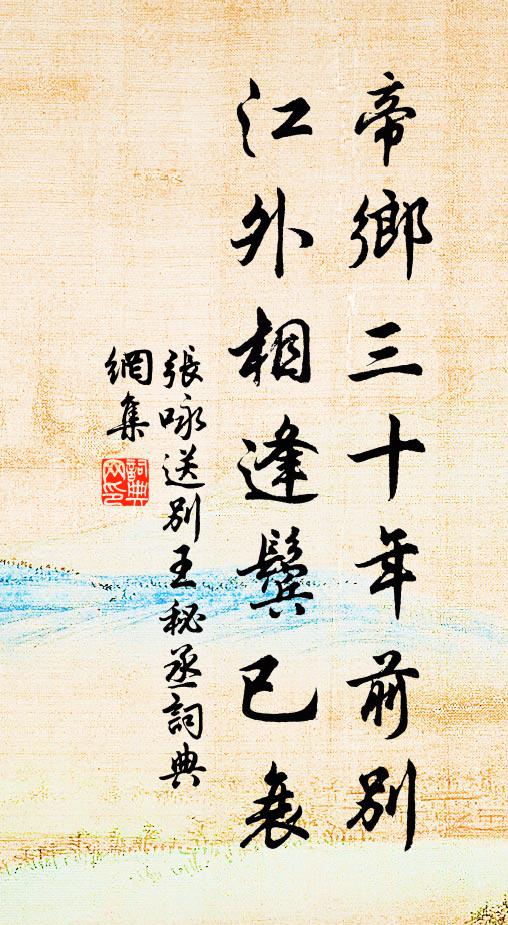 帝鄉三十年前別
江外相逢鬢已衰
張詠送別王秘丞詞典
網集
詞典
网印